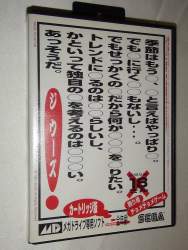 季節はもう◯と言えばやっぱり◯。
でも◯に行く◯もないし…。
でもせっかくの◯だから何か◯◯を◯りたい。
トレンドに◯るのは◯らしいし、
かといって独自の◯を考えるのは◯◯◯い。
あっそうだ。
ジ・ウーズ!
カートリッジ版
MD メガドライブ専用ソフト
18
SEGA